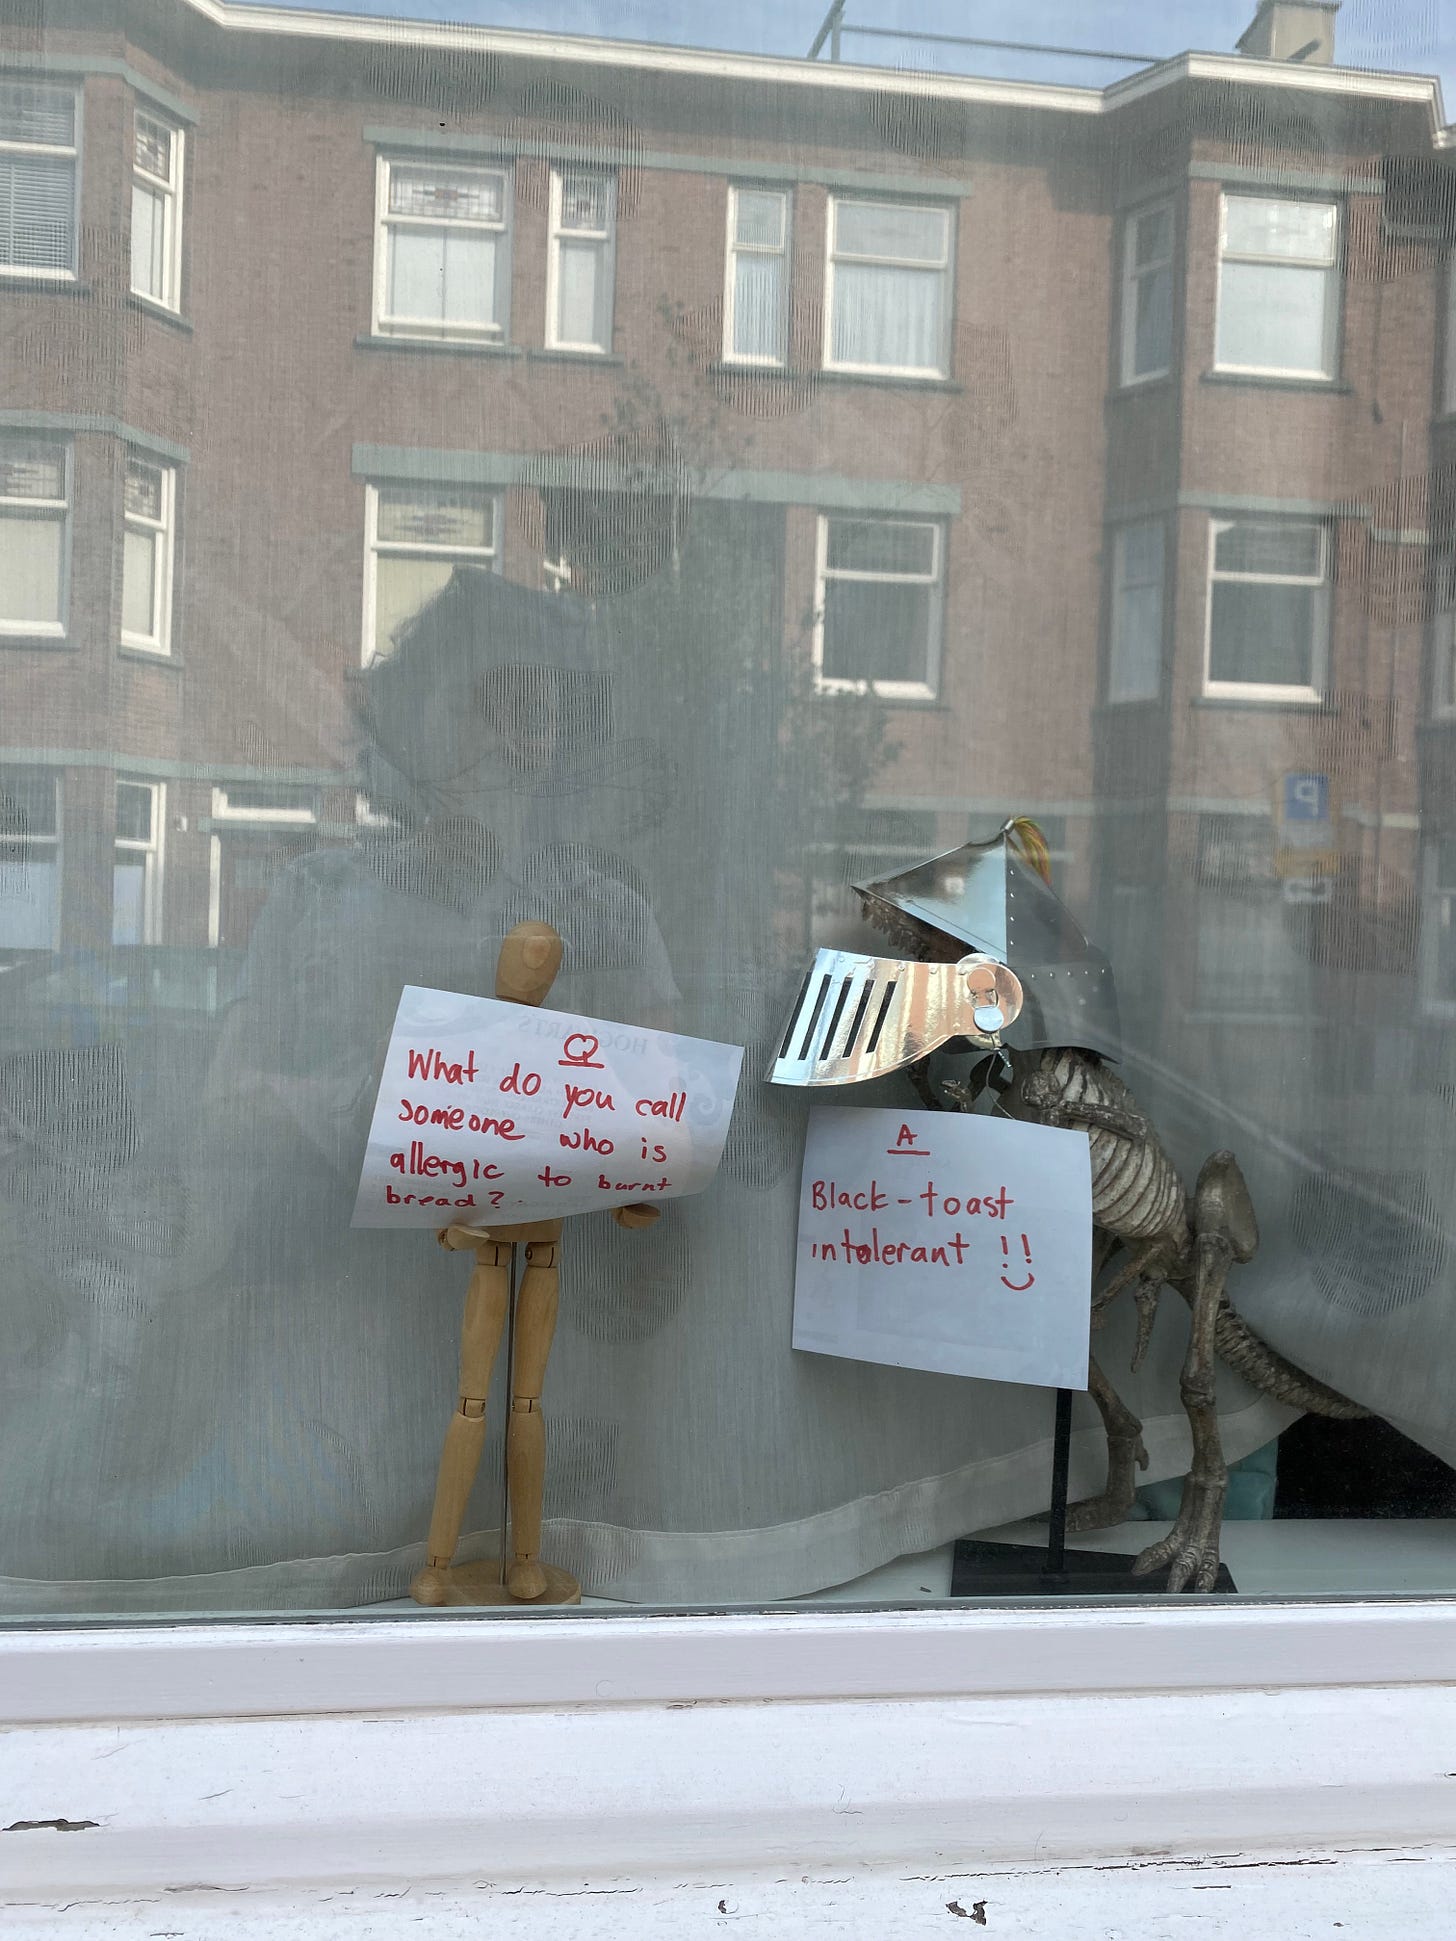 Q
What do you call
someone who is
allergic to burnt
bread?
A
Black-toast
intolerant !!
HOGWARTS
P